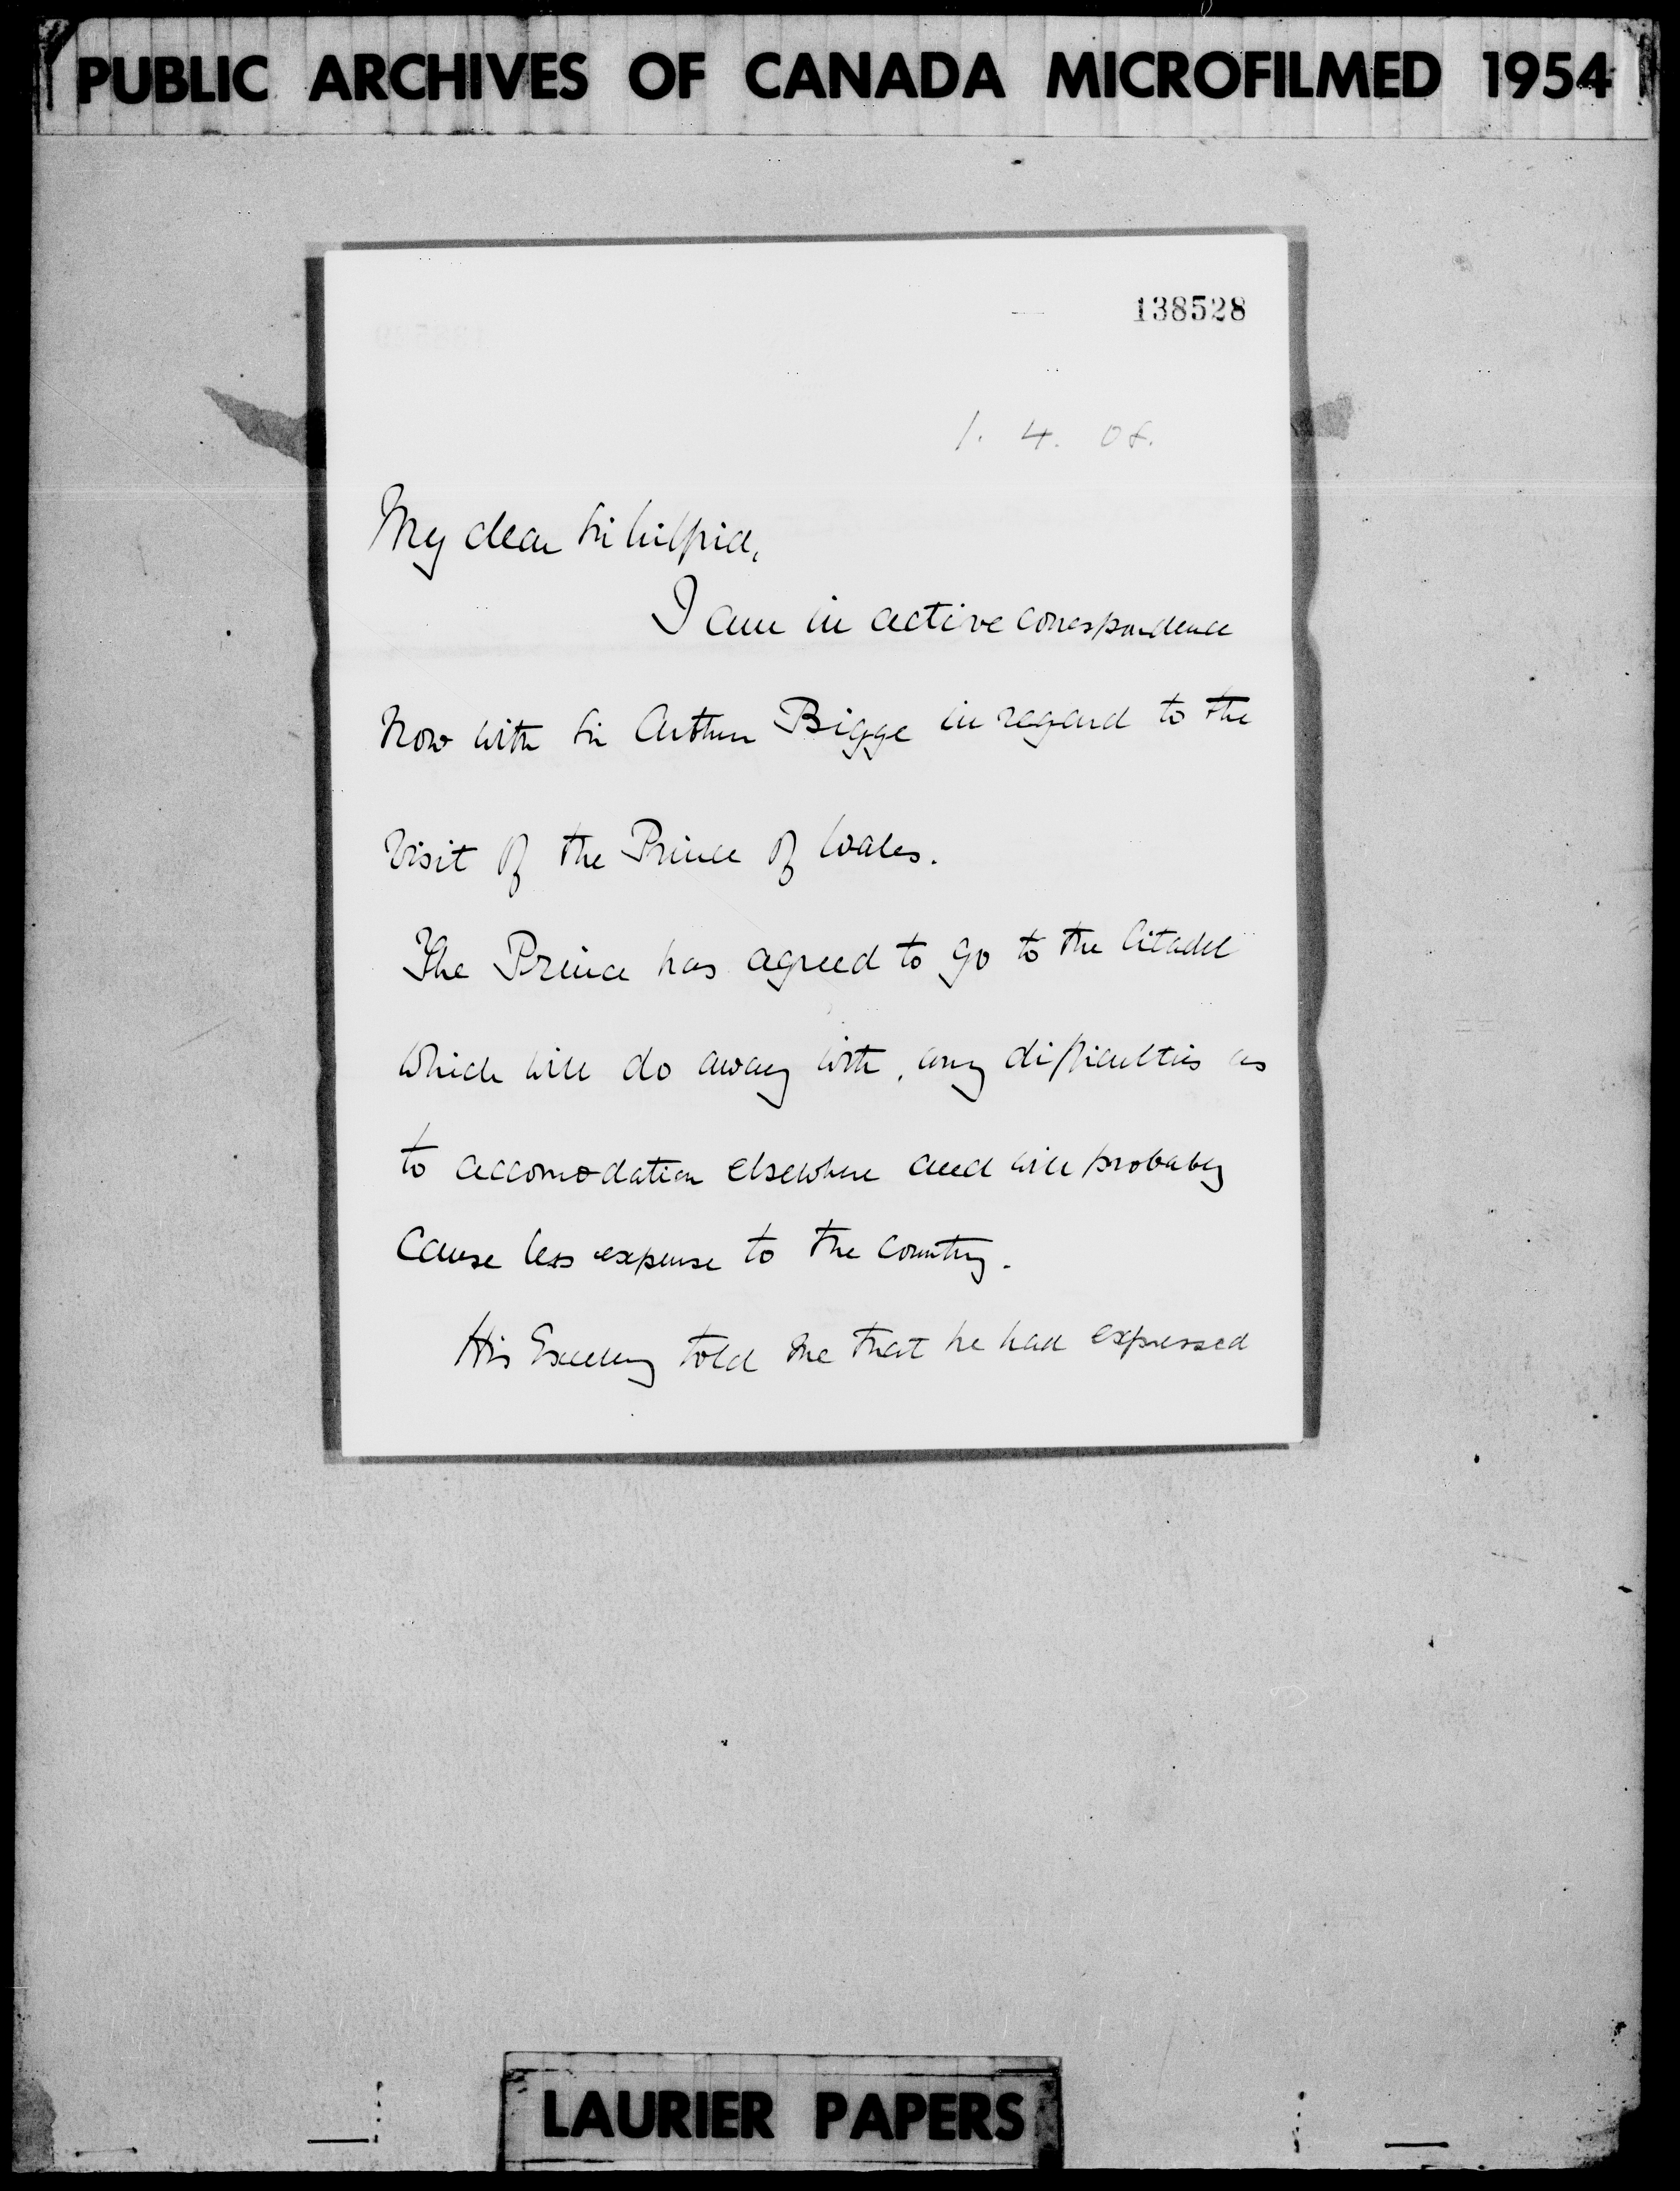 PUBLIC ARCHIVES OF CANADA MICROFILMED 1954
138528
1. 4. 08.
My dear Sir Wilfrid,
I am in active correspondence
now with Sir Arthur Bigge in regard to the
visit of the Prince of Wales.
The Prince has agreed to go to the Citadel
which will do away with any difficulties as
to accomodation elsewhere and will probably
cause less expense to the country.
His Excellency told me that he had expressed
LAURIER PAPERS